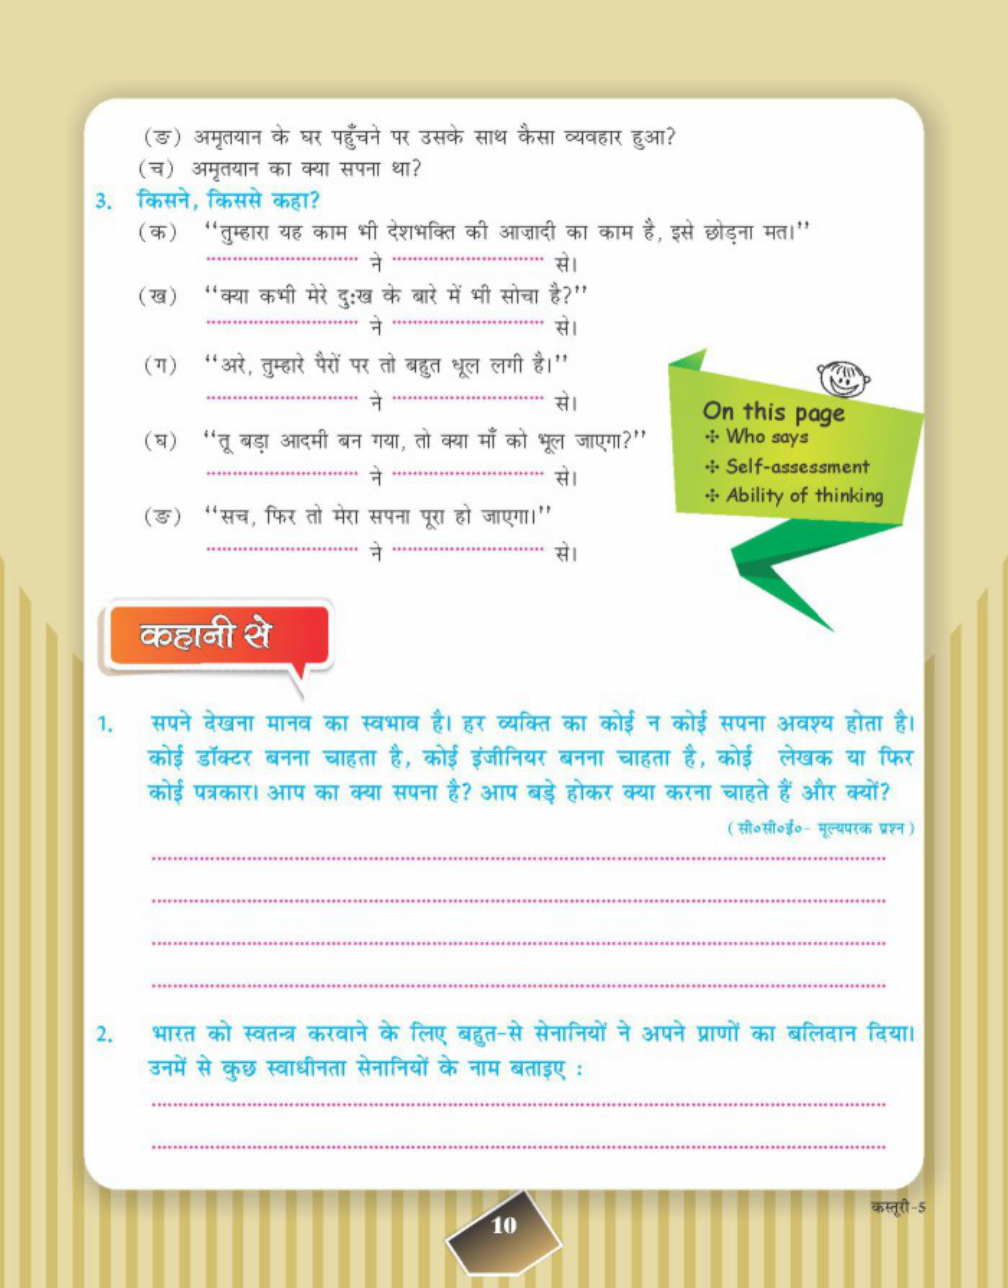 (ङ) अमृतयान के घर पहुँचने पर उसके साथ कैसा व्यवहार हुआ?
(च) अमृतयान का क्या सपना था?
3. किसने, किससे कहा?
(क) ‘‘तुम्हारा यह काम भी देशभक्ति की आज़ादी का काम है, इसे छोड़ना मत।’’
........................ ने ........................ से।
(ख) ‘‘क्या कभी मेरे दुःख के बारे में भी सोचा है?’’
........................ ने ........................ से।
(ग) ‘‘अरे, तुम्हारे पैरों पर तो बहुत धूल लगी है।’’
........................ ने ........................ से।
(घ) ‘‘तू बड़ा आदमी बन गया, तो क्या माँ को भूल जाएगा?’’
........................ ने ........................ से।
(ङ) ‘‘सच, फिर तो मेरा सपना पूरा हो जाएगा।’’
........................ ने ........................ से।
On this page
✣ Who says
✣ Self-assessment
✣ Ability of thinking
कहानी से
1. सपने देखना मानव का स्वभाव है। हर व्यक्ति का कोई न कोई सपना अवश्य होता है।
कोई डॉक्टर बनना चाहता है, कोई इंजीनियर बनना चाहता है, कोई लेखक या फिर
कोई पत्रकार। आप का क्या सपना है? आप बड़े होकर क्या करना चाहते हैं और क्यों?
(सी०सी०ई०- मूल्यपरक प्रश्न)
2. भारत को स्वतन्त्र करवाने के लिए बहुत-से सेनानियों ने अपने प्राणों का बलिदान दिया।
उनमें से कुछ स्वाधीनता सेनानियों के नाम बताइए :
कस्तूरी-5
10